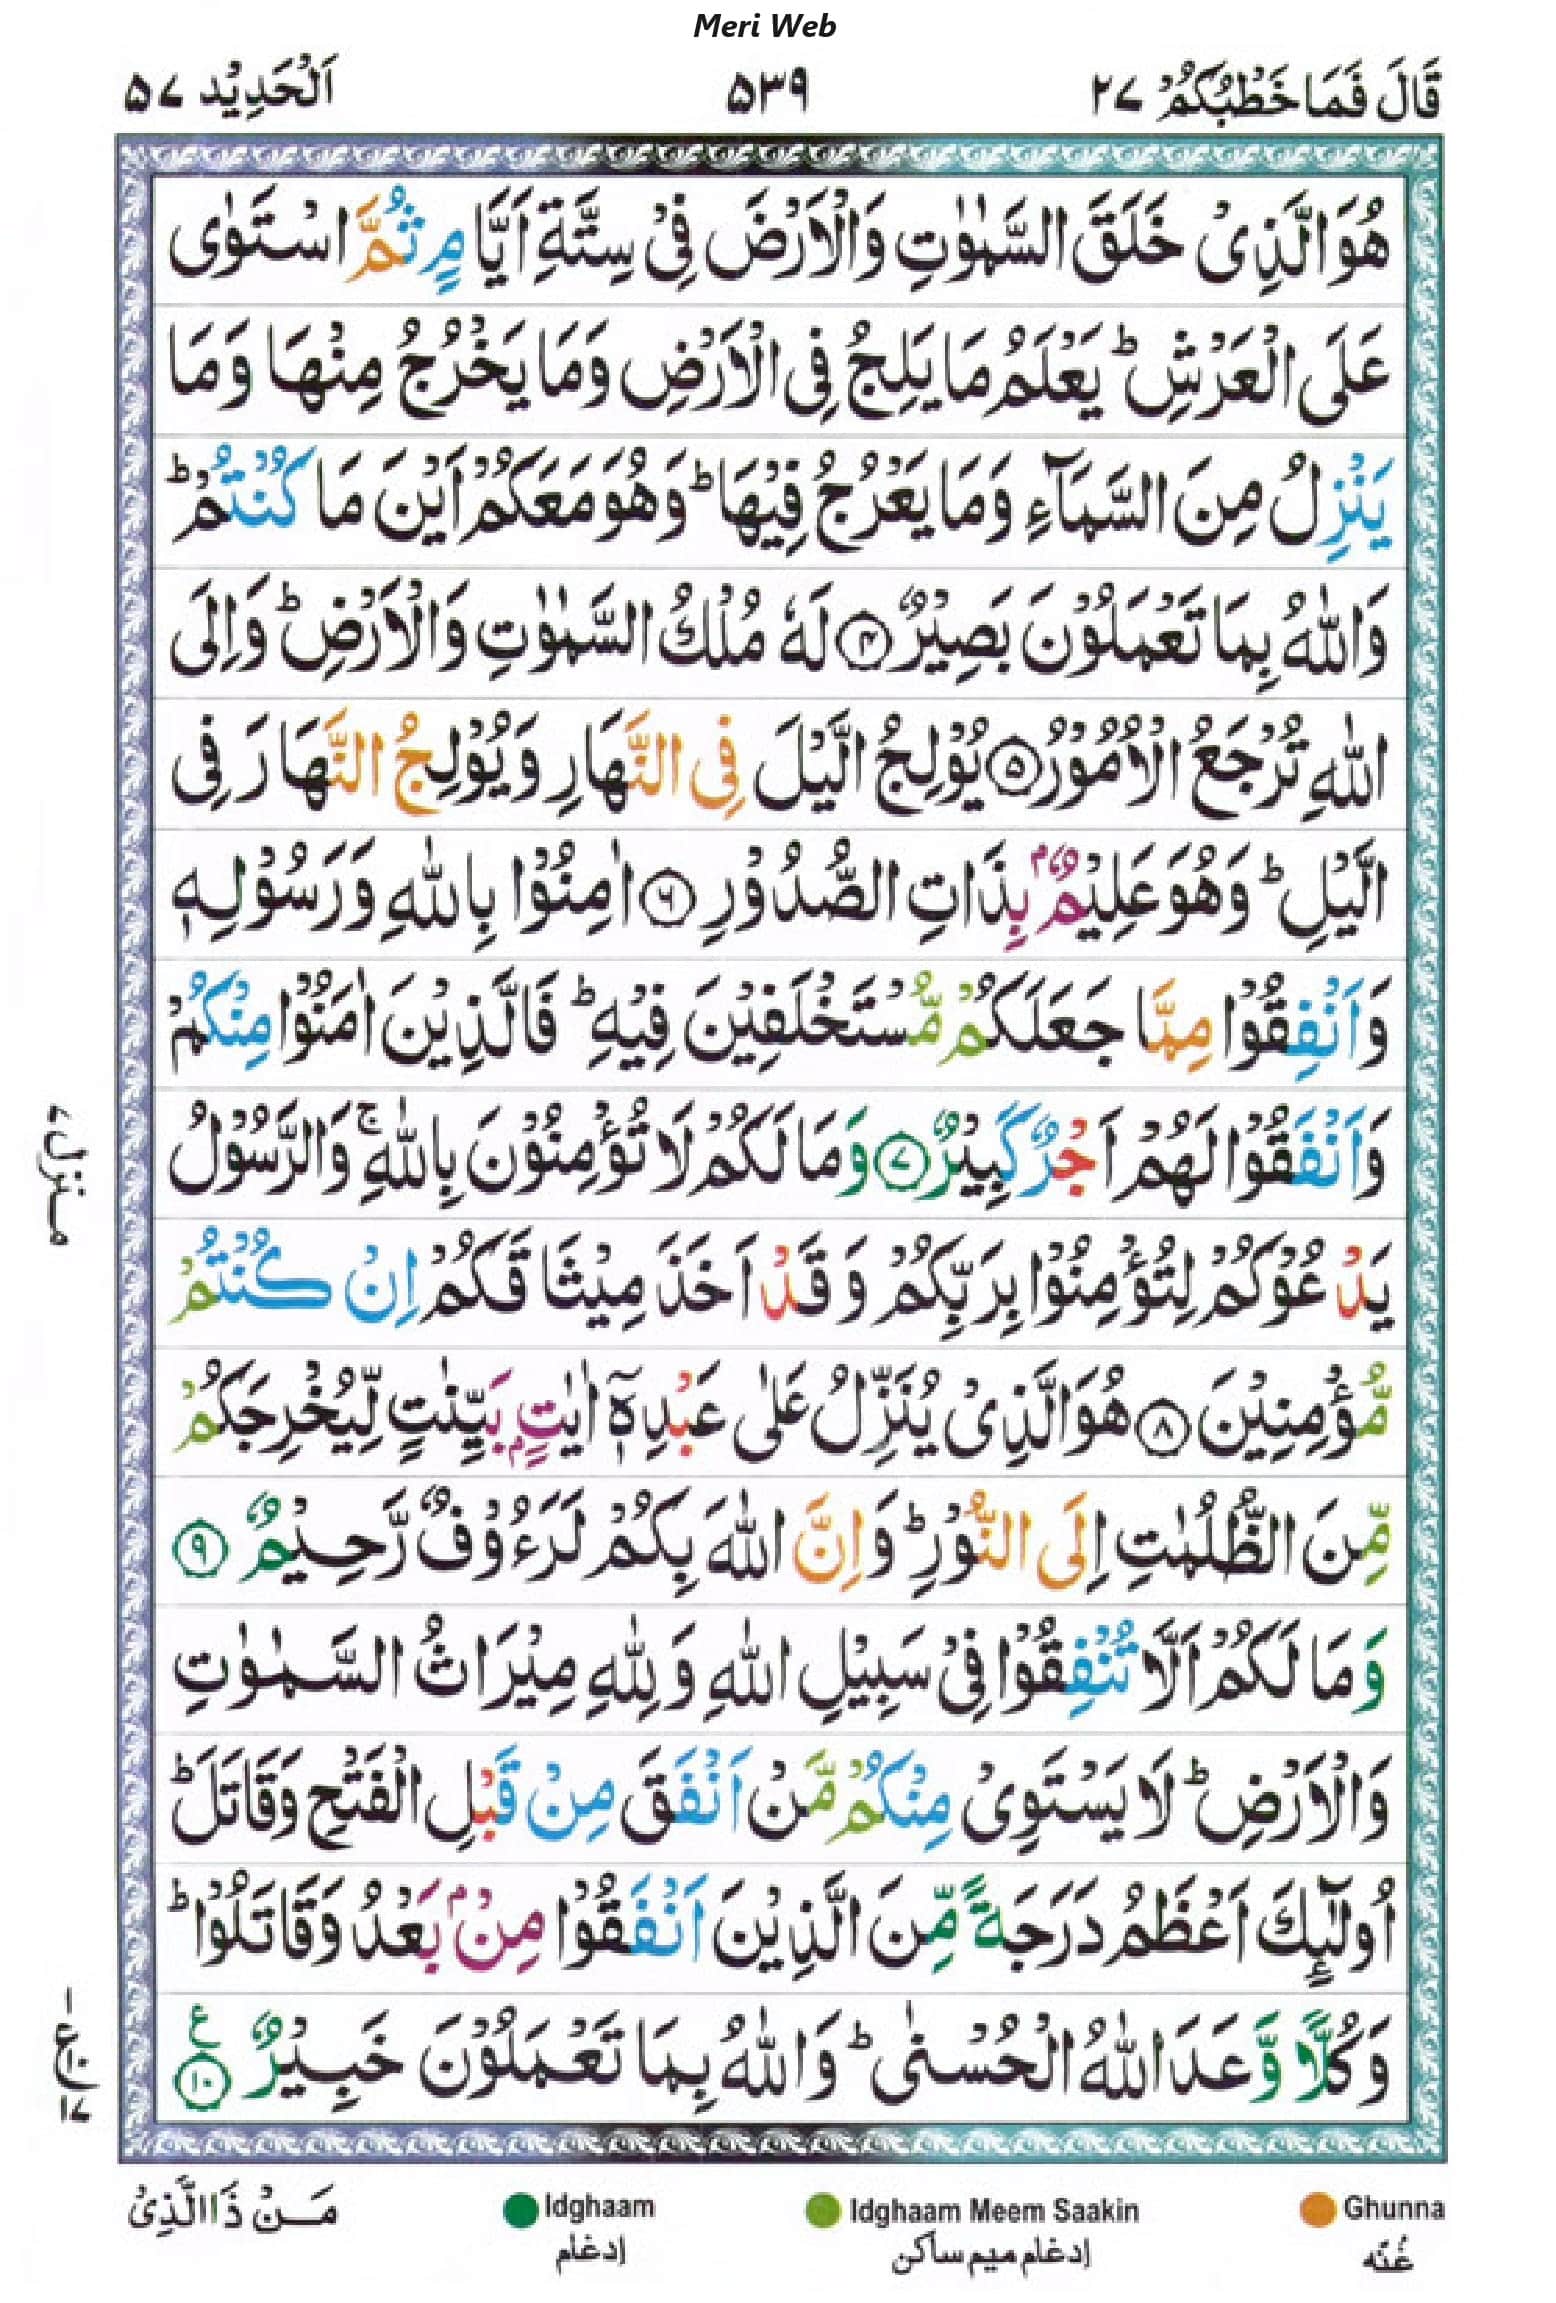 Meri Web
قَالَ فَمَا خَطْبُكُمْ ٢٧
٥٣٩
اَلْحَدِيْد ٥٧
هُوَ الَّذِىْ خَلَقَ السَّمٰوٰتِ وَالْاَرْضَ فِىْ سِتَّةِ اَيَّامٍ ثُمَّ اسْتَوٰى
عَلَى الْعَرْشِ ؕ يَعْلَمُ مَا يَلِجُ فِى الْاَرْضِ وَمَا يَخْرُجُ مِنْهَا وَمَا
يَنْزِلُ مِنَ السَّمَآءِ وَمَا يَعْرُجُ فِيْهَا ؕ وَهُوَ مَعَكُمْ اَيْنَ مَا كُنْتُمْ ؕ
وَاللّٰهُ بِمَا تَعْمَلُوْنَ بَصِيْرٌ ۝٤ لَهٗ مُلْكُ السَّمٰوٰتِ وَالْاَرْضِ ؕ وَاِلَى
اللّٰهِ تُرْجَعُ الْاُمُوْرُ ۝٥ يُوْلِجُ الَّيْلَ فِى النَّهَارِ وَيُوْلِجُ النَّهَارَ فِى
الَّيْلِ ؕ وَهُوَ عَلِيْمٌۢ بِذَاتِ الصُّدُوْرِ ۝٦ اٰمِنُوْا بِاللّٰهِ وَرَسُوْلِهٖ
وَاَنْفِقُوْا مِمَّا جَعَلَكُمْ مُّسْتَخْلَفِيْنَ فِيْهِ ؕ فَالَّذِيْنَ اٰمَنُوْا مِنْكُمْ
وَاَنْفَقُوْا لَهُمْ اَجْرٌ كَبِيْرٌ ۝٧ وَمَا لَكُمْ لَا تُؤْمِنُوْنَ بِاللّٰهِ ۚ وَالرَّسُوْلُ
يَدْعُوْكُمْ لِتُؤْمِنُوْا بِرَبِّكُمْ وَقَدْ اَخَذَ مِيْثَاقَكُمْ اِنْ كُنْتُمْ
مُّؤْمِنِيْنَ ۝٨ هُوَ الَّذِىْ يُنَزِّلُ عَلٰى عَبْدِهٖۤ اٰيٰتٍۭ بَيِّنٰتٍ لِّيُخْرِجَكُمْ
مِّنَ الظُّلُمٰتِ اِلَى النُّوْرِ ؕ وَاِنَّ اللّٰهَ بِكُمْ لَرَءُوْفٌ رَّحِيْمٌ ۝٩
وَمَا لَكُمْ اَلَّا تُنْفِقُوْا فِىْ سَبِيْلِ اللّٰهِ وَلِلّٰهِ مِيْرَاثُ السَّمٰوٰتِ
وَالْاَرْضِ ؕ لَا يَسْتَوِىْ مِنْكُمْ مَّنْ اَنْفَقَ مِنْ قَبْلِ الْفَتْحِ وَقَاتَلَ ؕ
اُولٰٓئِكَ اَعْظَمُ دَرَجَةً مِّنَ الَّذِيْنَ اَنْفَقُوْا مِنْۢ بَعْدُ وَقَاتَلُوْا ؕ
وَكُلًّا وَّعَدَ اللّٰهُ الْحُسْنٰى ؕ وَاللّٰهُ بِمَا تَعْمَلُوْنَ خَبِيْرٌ ۝١٠ ع
منزل ٧
مَنْ ذَا الَّذِىْ
Idghaam
إدغام
Idghaam Meem Saakin
إدغام ميم ساكن
Ghunna
غُنّه